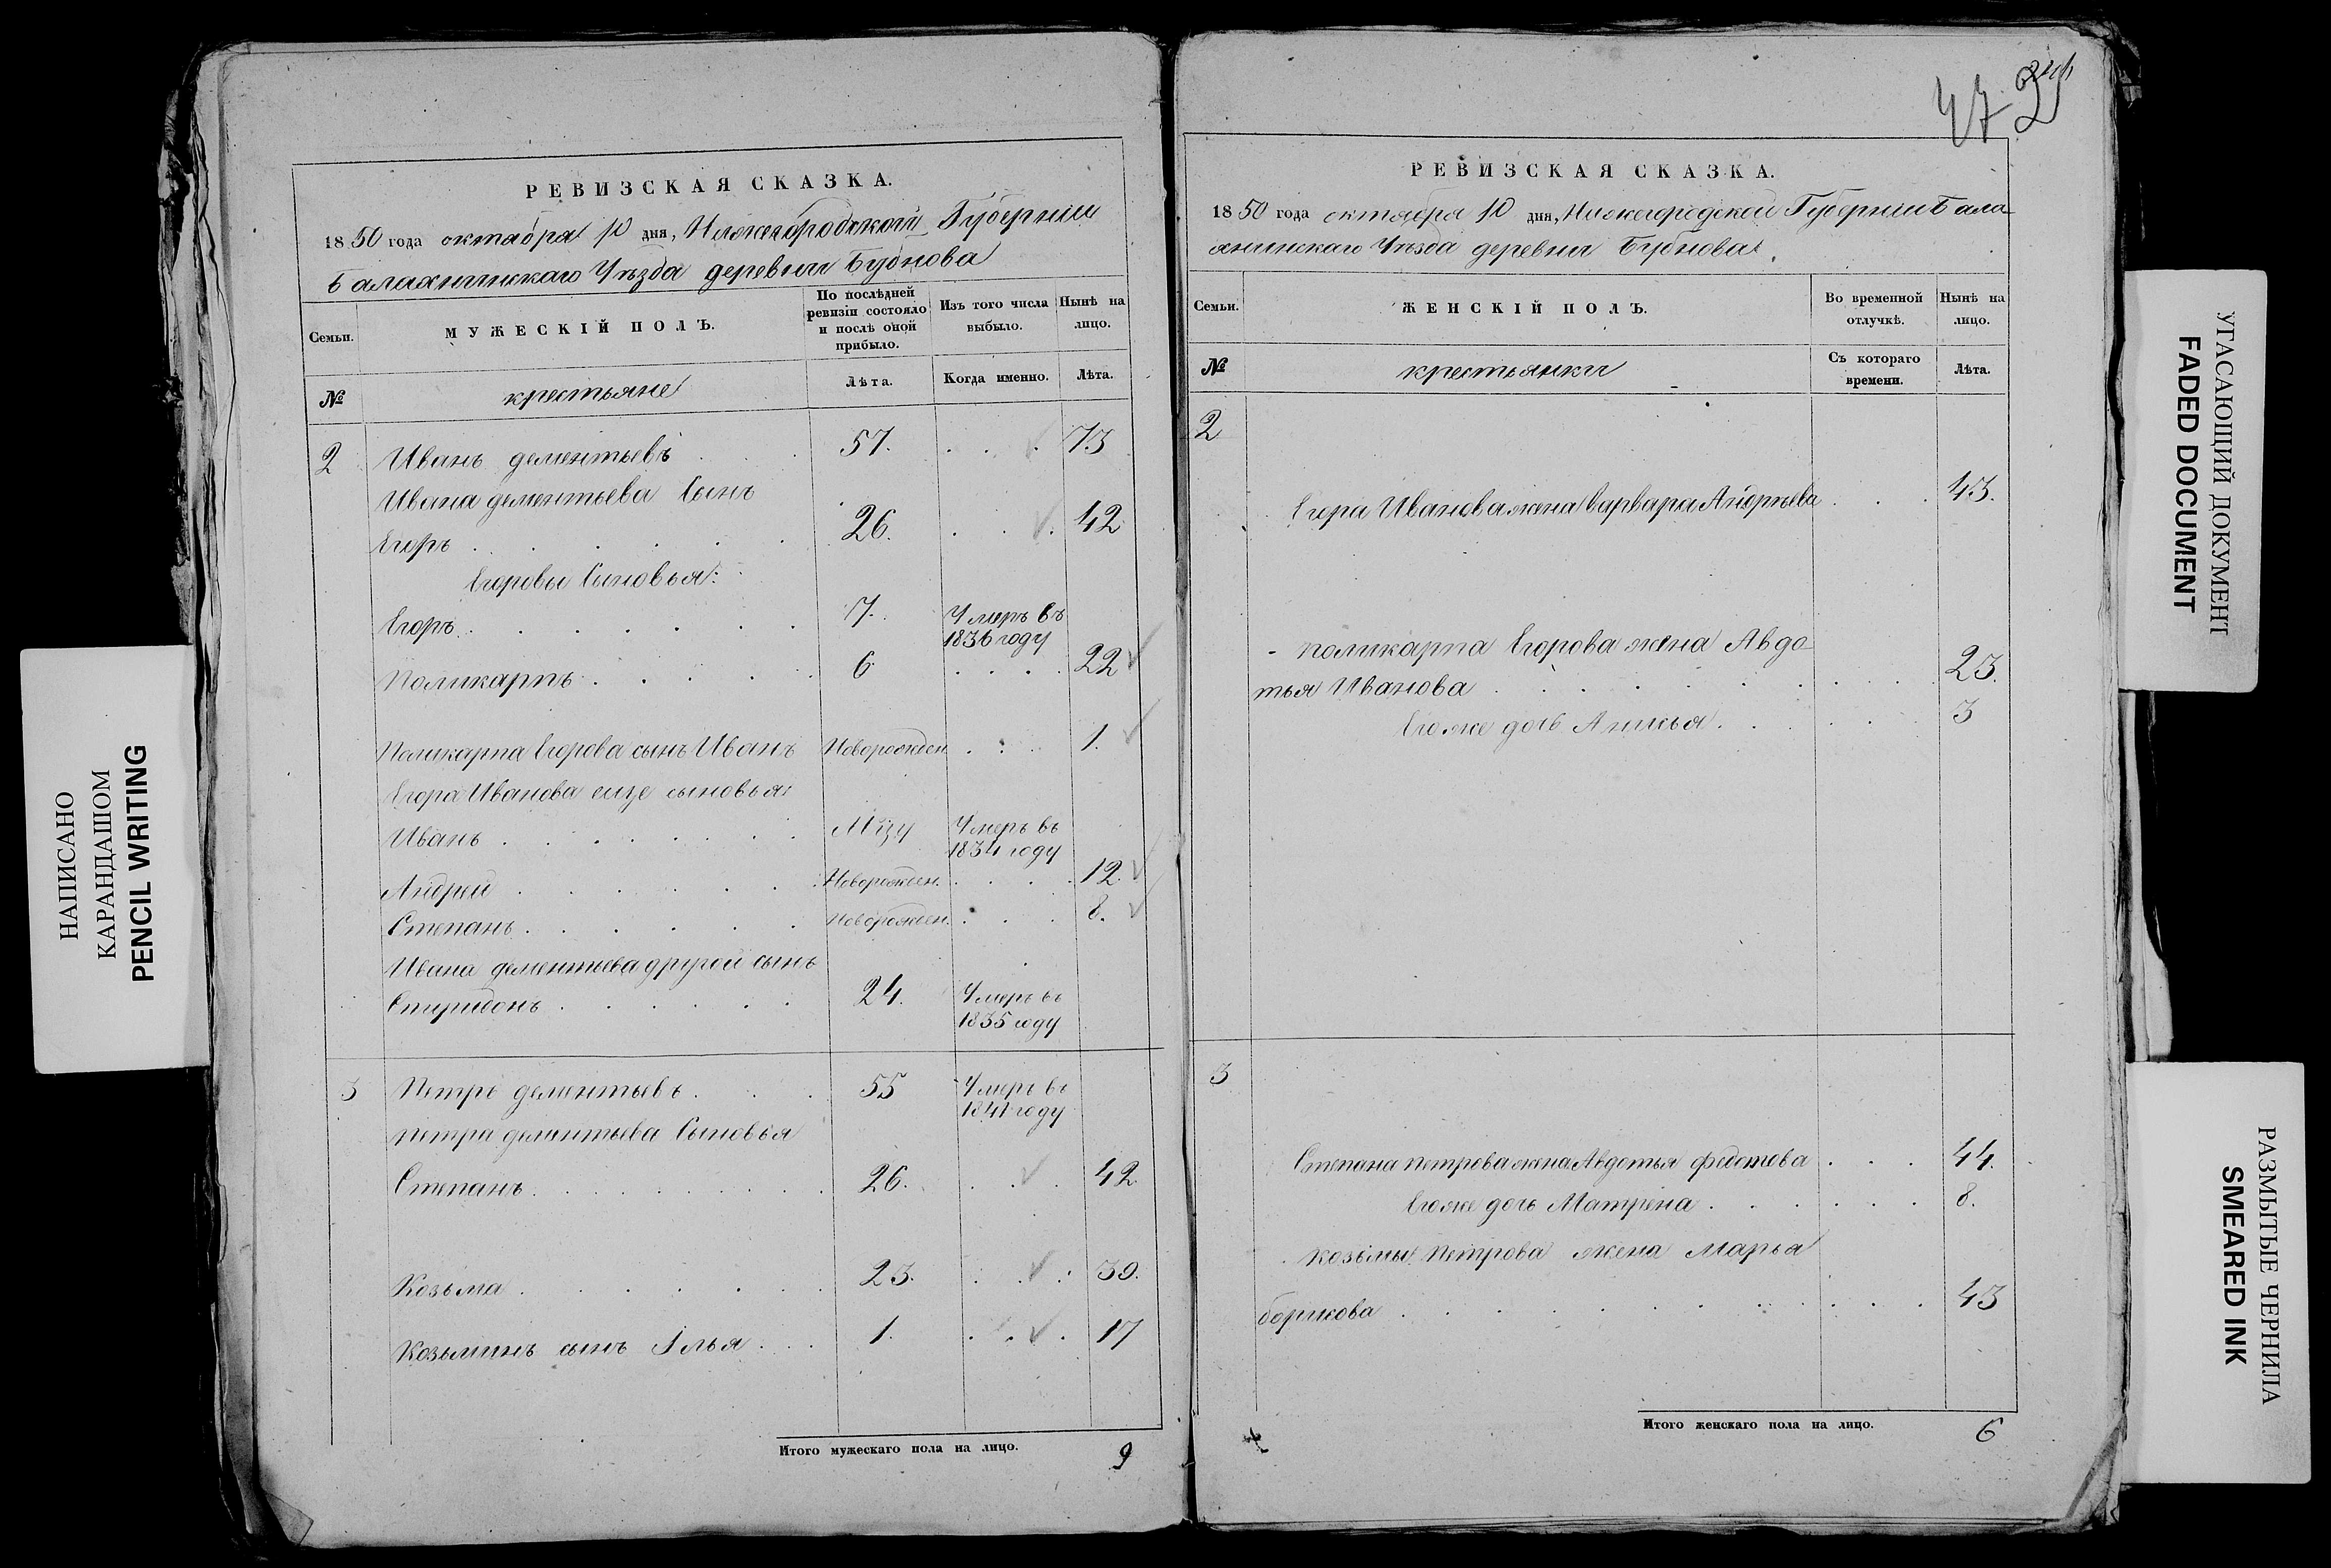 РЕВИЗСКАЯ СКАЗКА.
1850 года октября 10 дня, Нижегородской Губерніи
Балахнинскаго Уѣзда деревни Бубнова
Семьи.
МУЖЕСКІЙ ПОЛЪ.
По послѣдней
ревизіи состояло
и послѣ оной
прибыло.
Изъ того числа
выбыло.
Нынѣ на
лицо.
№
крестьяне
Лѣта.
Когда именно.
Лѣта.
2 Иванъ дементьевъ . . . 57. . . . 73
Ивана дементьева Сынъ
Егоръ . . . . . 26. . . . 42
Егоровы Сыновья:
Егоръ . . . . . . . 7. Умеръ въ
1836 году
Поликарпъ . . . . . 6 . . . . 22
Поликарпа Егорова сынъ Иванъ Новорожден. . . . 1.
Егора Иванова еще сыновья:
Иванъ . . . . . . . Умеръ въ
1834 году
Андрей . . . . . . Новорожден. . . . . 12.
Степанъ . . . . . . Новорожден. . . . 8.
Ивана дементьева другой сынъ
Спиридонъ . . . . . . 24. Умеръ въ
1835 году
3 Петръ дементьевъ . . . 55 Умеръ въ
1841 году
Петра дементьева Сыновья
Степанъ . . . . . . . . 26. . . . 42
Козьма . . . . . . . 23. . . . 39.
Козьминъ сынъ Илья . . . 1. . . . 17
Итого мужескаго пола на лицо. 9
47
РЕВИЗСКАЯ СКАЗКА.
1850 года октября 10 дня, Нижегородской Губерніи Бала-
хнинскаго Уѣзда деревни Бубнова.
Семьи.
ЖЕНСКІЙ ПОЛЪ.
Во временной
отлучкѣ.
Нынѣ на
лицо.
№
крестьянки
Съ котораго
времени.
Лѣта.
2
Егора Иванова жена Варвара Андреева . . . 43.
Поликарпа Егорова жена Авдо-
тья Иванова . . . . . . . . . . 23.
Его же дочь . . . . . 3
3
Степана Петрова жена Авдотья федотова . . . 44.
Его же дочь Матрена . . . . . . 8.
козьмы Петрова жена Марья
борисова . . . . . . . . . . . 43
Итого женскаго пола на лицо. 6
НАПИСАНО
КАРАНДАШОМ
PENCIL WRITING
УГАСАЮЩИЙ ДОКУМЕНТ
FADED DOCUMENT
РАЗМЫТЫЕ ЧЕРНИЛА
SMEARED INK